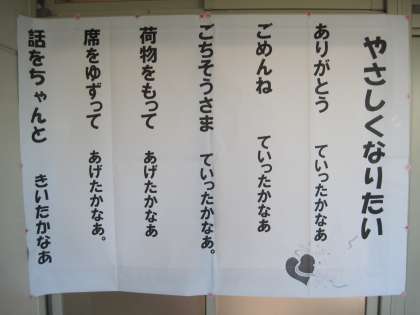 やさしくなりたい
ありがとう ていったかなあ
ごめんね ていったかなあ
ごちそうさま ていったかなあ。
荷物をもって あげたかなあ
席をゆずって あげたかなあ。
話をちゃんと きいたかなあ